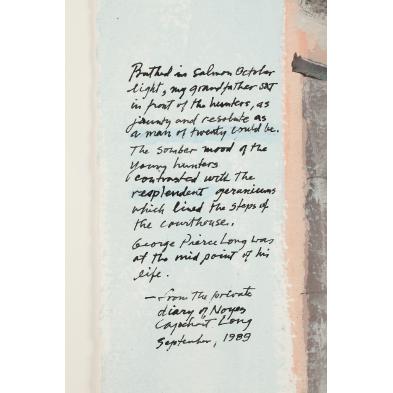 Bathed in salmon October
light, my grandfather sat
in front of the hunters, as
jaunty and resolute as
a man of twenty could be.
The somber mood of the
young hunters
contrasted with the
resplendent geraniums
which lined the steps of
the courthouse.
George Pierce Long was
at the mid point of his
life.
— from the private
diary of Noyes
Capehart Long
September, 1989